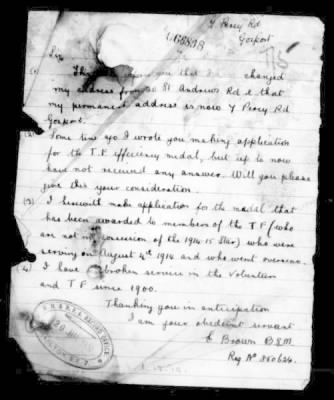 7 Percy Rd
Gosport
Sir
(1) This you that I changed
my address from 20 St Andrews Rd & that
my permanent address is now 7 Percy Rd
Gosport.
Some time ago I wrote you making application
for the T.F. efficiency medal, but up to now
have not received any answer. Will you please
give this your consideration.
(3) I herewith make application for the medal that
has been awarded to members of the T.F. (who
are not in possession of the 1914-15 Star) who were
serving on August 4th 1914 and who went overseas.
(4) I have broken service in the Volunteer
and T F since 1900.
Thanking you in anticipation
I am your obedient servant
E Brown B.S.M.
Reg No 350624.